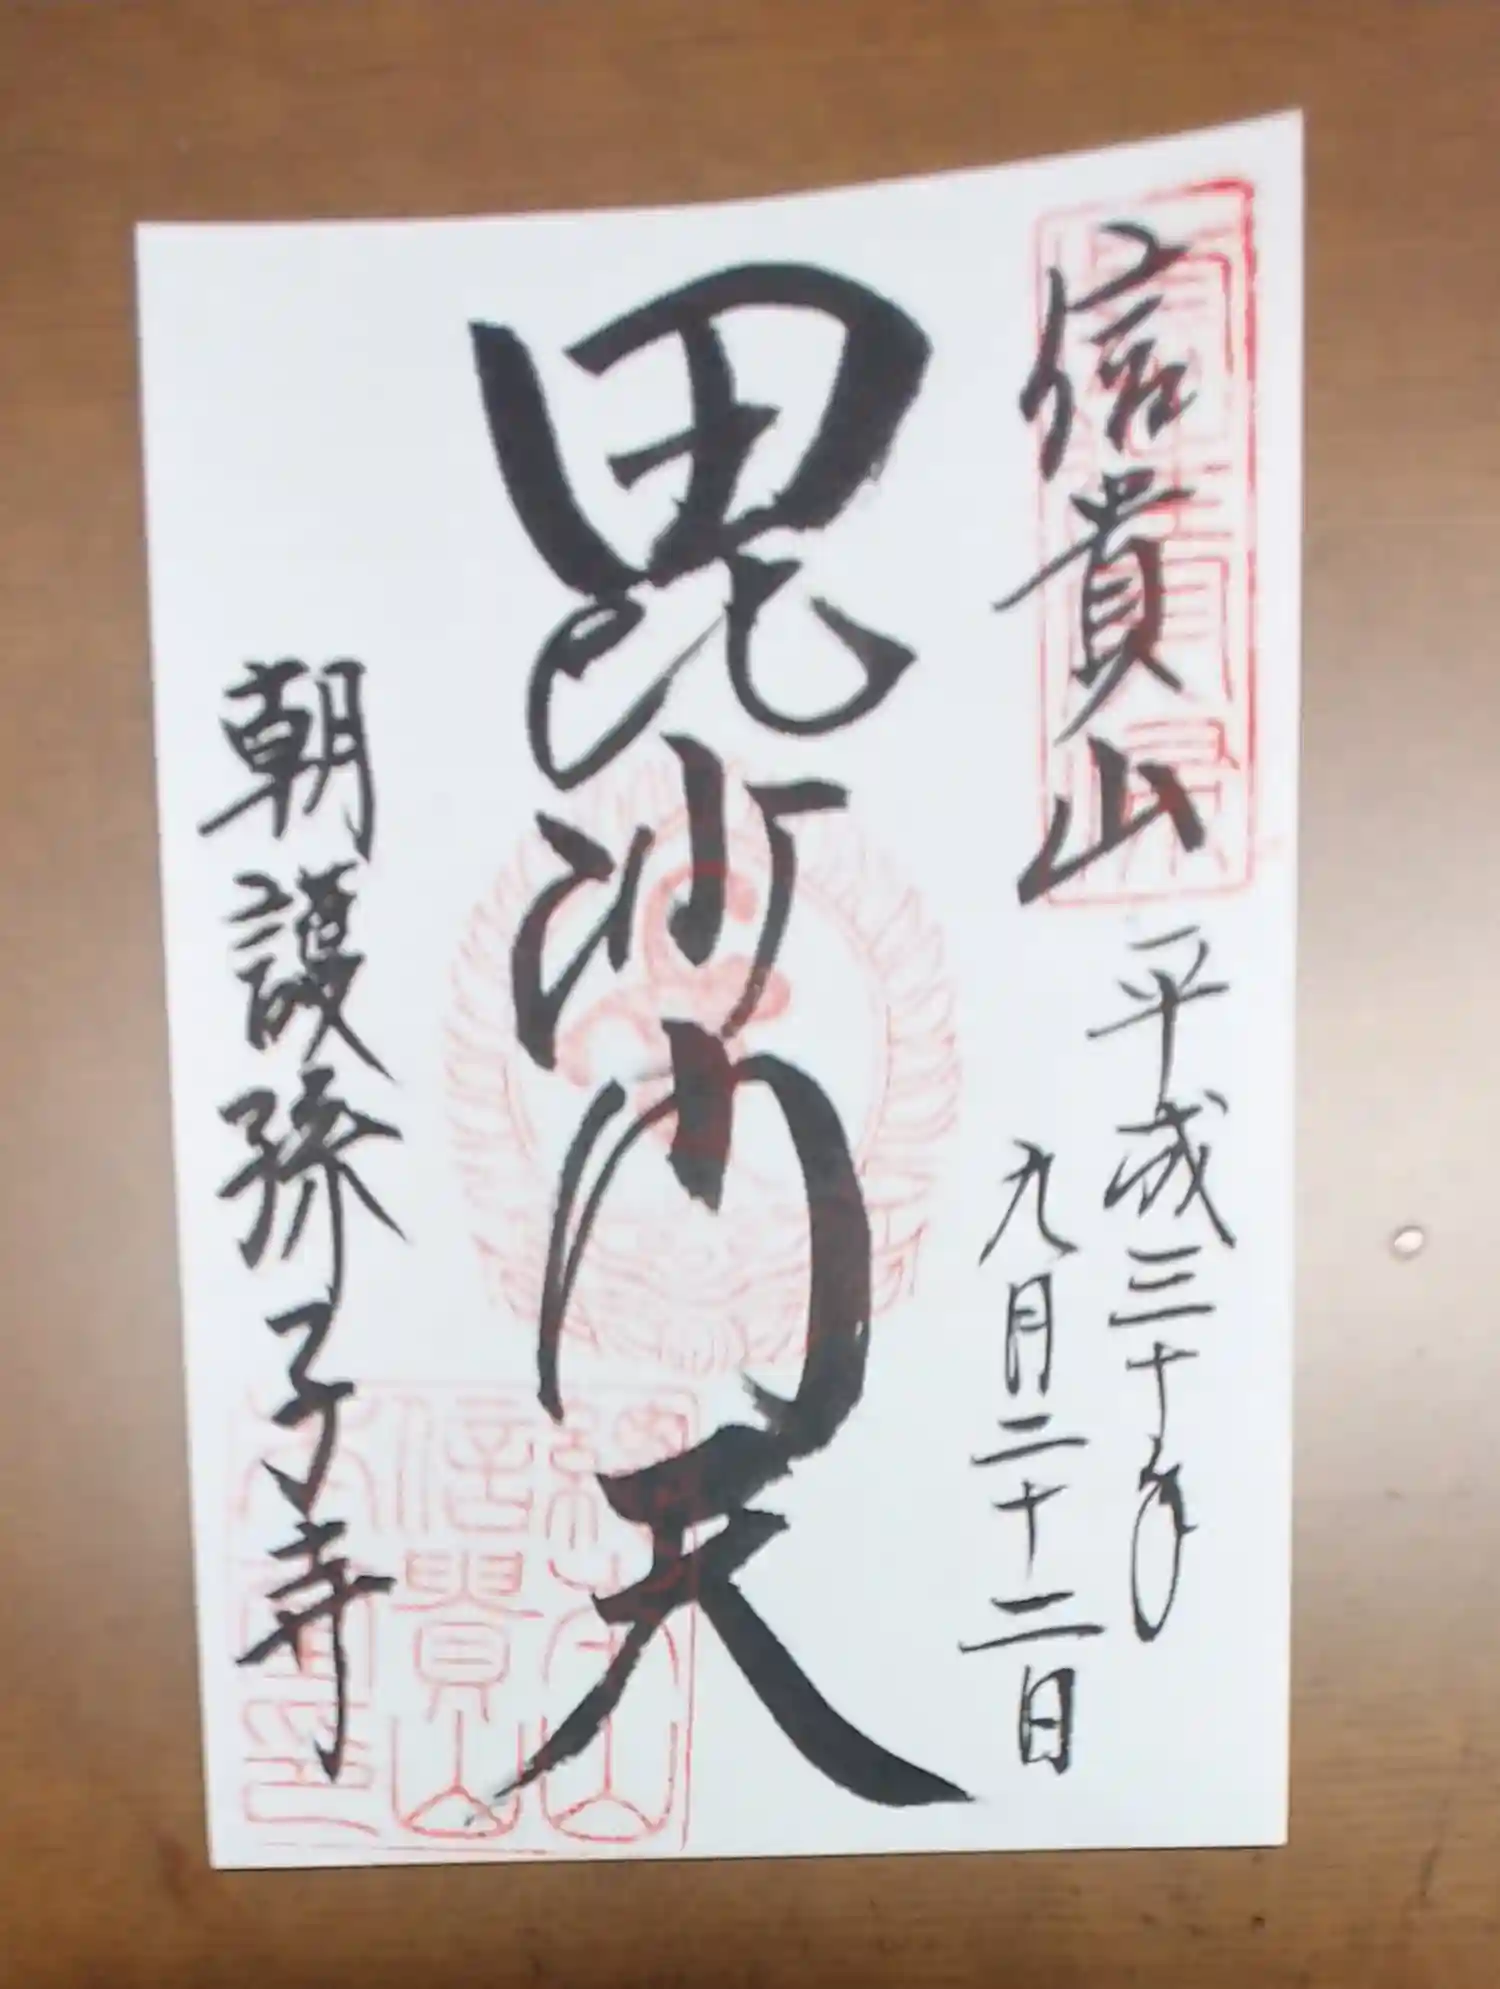 信貴山
平成三十年
九月二十二日
毘沙門天
朝護孫子寺
総本山
信貴山
本堂印